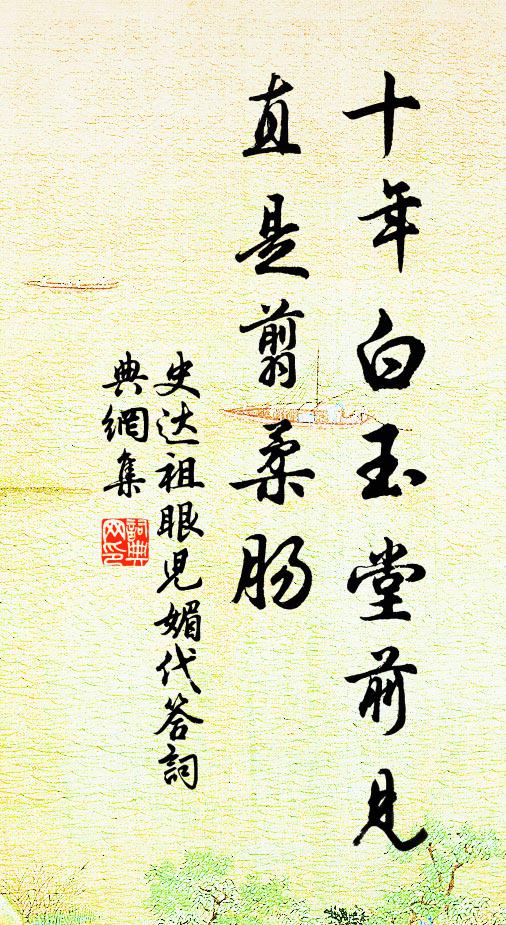 十年白玉堂前见
直是翦柔肠
史达祖眼児媚代答詞
典網集
詞典
网印